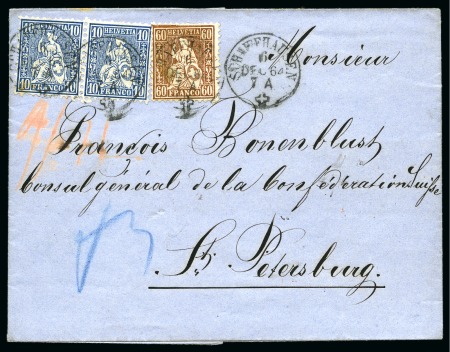 10 HELVETIA 10
10 FRANCO 10
10 HELVETIA 10
10 FRANCO 10
60 HELVETIA 60
60 FRANCO 60
SCHAFFHAUSEN
DEC 64
7 A
Monsieur
François Bonenblust
Consul général de la Confédération Suisse
St. Petersburg.